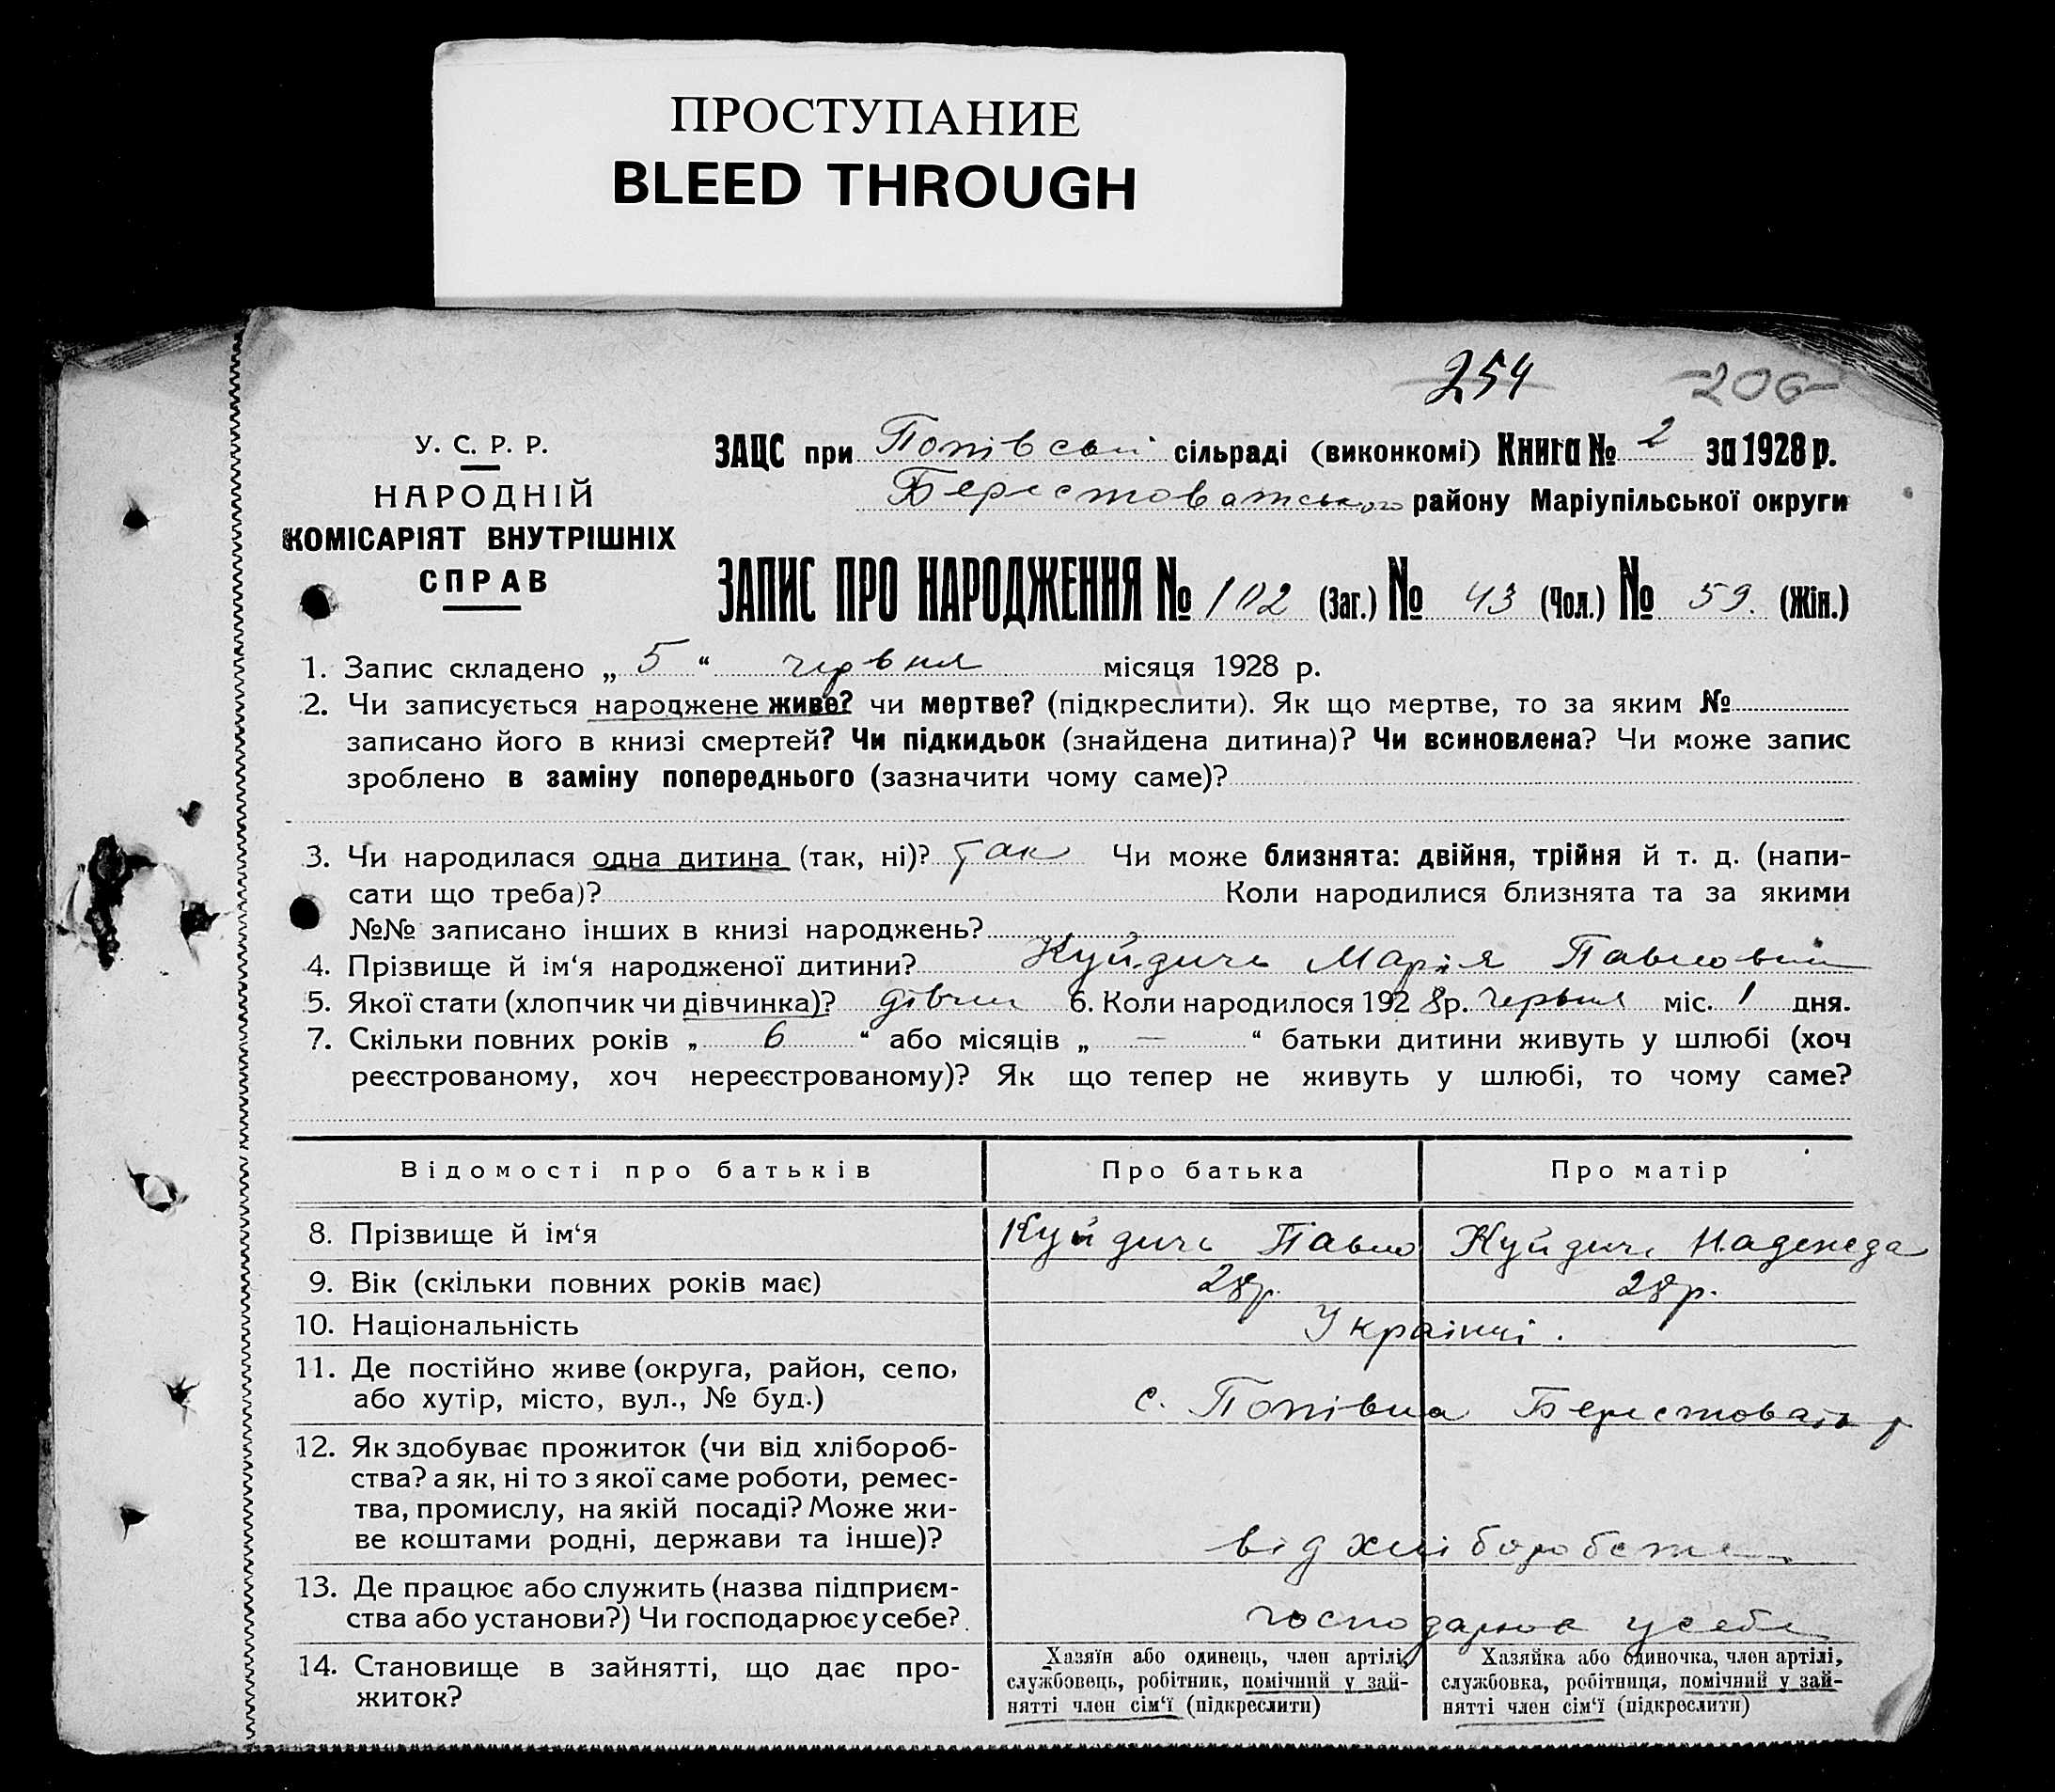 ПРОСТУПАНИЕ
BLEED THROUGH
254 206
У. С. Р. Р.
НАРОДНІЙ
КОМІСАРІЯТ ВНУТРІШНІХ
СПРАВ
ЗАЦС при Попівській сільраді (виконкомі) Книга № 2 за 1928 р.
Берестоватського району Маріупільської округи
ЗАПИС ПРО НАРОДЖЕННЯ № 102 (Заг.) № 43 (Чол.) № 59. (Жін.)
1. Запис складено „ 5 “ червня місяця 1928 р.
2. Чи записується народжене живе? чи мертве? (підкреслити). Як що мертве, то за яким №
записано його в книзі смертей? Чи підкидьок (знайдена дитина)? Чи всиновлена? Чи може запис
зроблено в заміну попереднього (зазначити чому саме)?
3. Чи народилася одна дитина (так, ні)? так Чи може близнята: двійня, трійня й т. д. (напи-
сати що треба)? Коли народилися близнята та за якими
№№ записано інших в книзі народжень?
4. Прізвище й ім‘я народженої дитини? Куйдичь Марія Павловна
5. Якої стати (хлопчик чи дівчинка)? дівчин 6. Коли народилося 1928 р. червня міс. 1 дня.
7. Скільки повних років „ 6 “ або місяців „ — “ батьки дитини живуть у шлюбі (хоч
реєстрованому, хоч нереєстрованому)? Як що тепер не живуть у шлюбі, то чому саме?
Відомості про батьків Про батька Про матір
8. Прізвище й ім‘я Куйдичь Павло Куйдичь Надежда
9. Вік (скільки повних років має) 28р. 28р.
10. Національність Українці.
11. Де постійно живе (округа, район, село,
або хутір, місто, вул., № буд.) с. Попівка Берестоват р
12. Як здобуває прожиток (чи від хлібороб-
ства? а як, ні то з якої саме роботи, ремес-
тва, промислу, на якій посаді? Може жи-
ве коштами родні, держави та інше)? від хліборобства
13. Де працює або служить (назва підприєм-
ства або установи?) Чи господарює у себе? господарює у себе
14. Становище в зайнятті, що дає про-
житок?
Хазяїн або одинець, член артілі,
службовець, робітник, помічний у зай-
нятті член сім‘ї (підкреслити)
Хазяйка або одиночка, член артілі,
службовка, робітниця, помічний у зай-
нятті член сім‘ї (підкреслити)